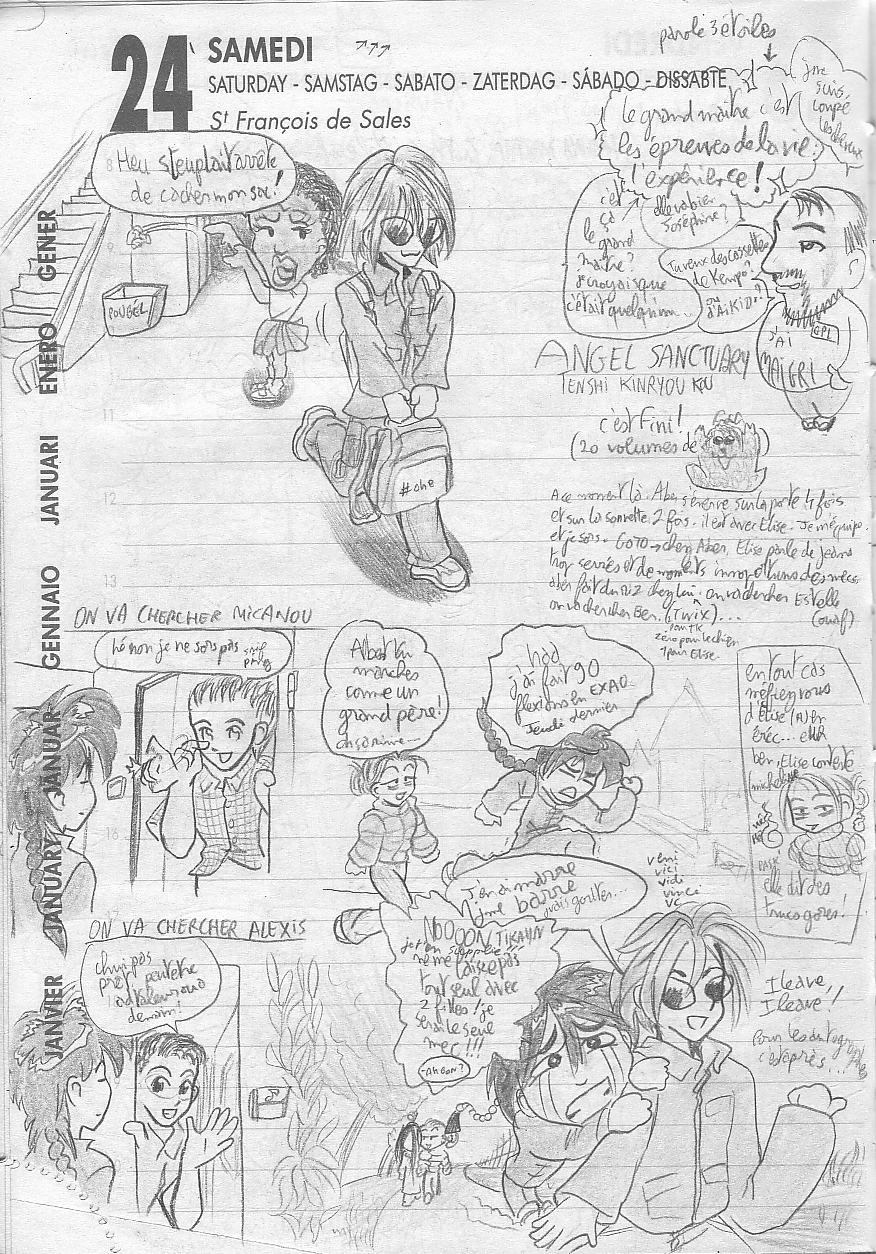 24
SAMEDI
SATURDAY - SAMSTAG - SABATO - ZATERDAG - SÁBADO - DISSABTE
St François de Sales
JANVIER JANUARY JANUAR GENNAIO JANUARI ENERO GENER
parole 3 étoiles
je me
suis
coupé
les cheveux
le grand maître c'est
les épreuves de la vie :
l'expérience !
Meu steuplait arrête
de cacher mon sac !
POUBEL
#one
c'est
ça
le
grand
maître ?
je croyais que
c'était quelqu'un...
elle va bien
Joséphine ?
Tu veux des cassettes
de Kempo ?
ou
d'AiKiDo ?
J'AI
MAIGRI
ANGEL SANCTUARY
TENSHI KINRYOU KU
c'est Fini !
(20 volumes de
)
A ce moment là, Aber s'énerve sur la porte 4 fois
et sur la sonnette 2 fois. il est avec Elise. Je m'équipe
et je sors. GOTO → chez Aber, Elise parle de jeans
trop serrés et de moments inopportuns des mecs
Aber fait du riz chez lui. on va chercher Estelle
(ouaf)
on va chercher Ben. (Twix)...
zéro pour le chien
1 pour Elise.
ON VA CHERCHER MICANOU
hé non je ne sors pas
Albert tu
marches
comme un
grand père !
on s'arrime...
j'ai fait 90
flexions en EXAO
Jeudi dernier
en tout cas
méfiez vous
d'Elise
ben, Elise contente
elle dit des
trucs gores !
J'en ai marre
j'me barre
veni
vici
vidi
vinci
VC
ON VA CHERCHER ALEXIS
chui pas
prêt peut être
demain !
NOOOON, TIKAYN
je t'en supplie !!!
ne me laisse pas
tout seul avec
2 filles ! je
serai le seul
mec !!!
- Ah bon ?
I leave,
I leave !
Pour les autographes
c'est après...